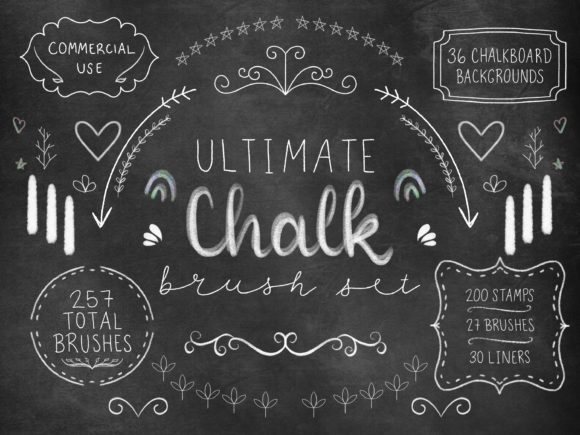 COMMERCIAL
USE
36 CHALKBOARD
BACKGROUNDS
ULTIMATE
Chalk
brush set
257
TOTAL
BRUSHES
200 STAMPS
27 BRUSHES
30 LINERS